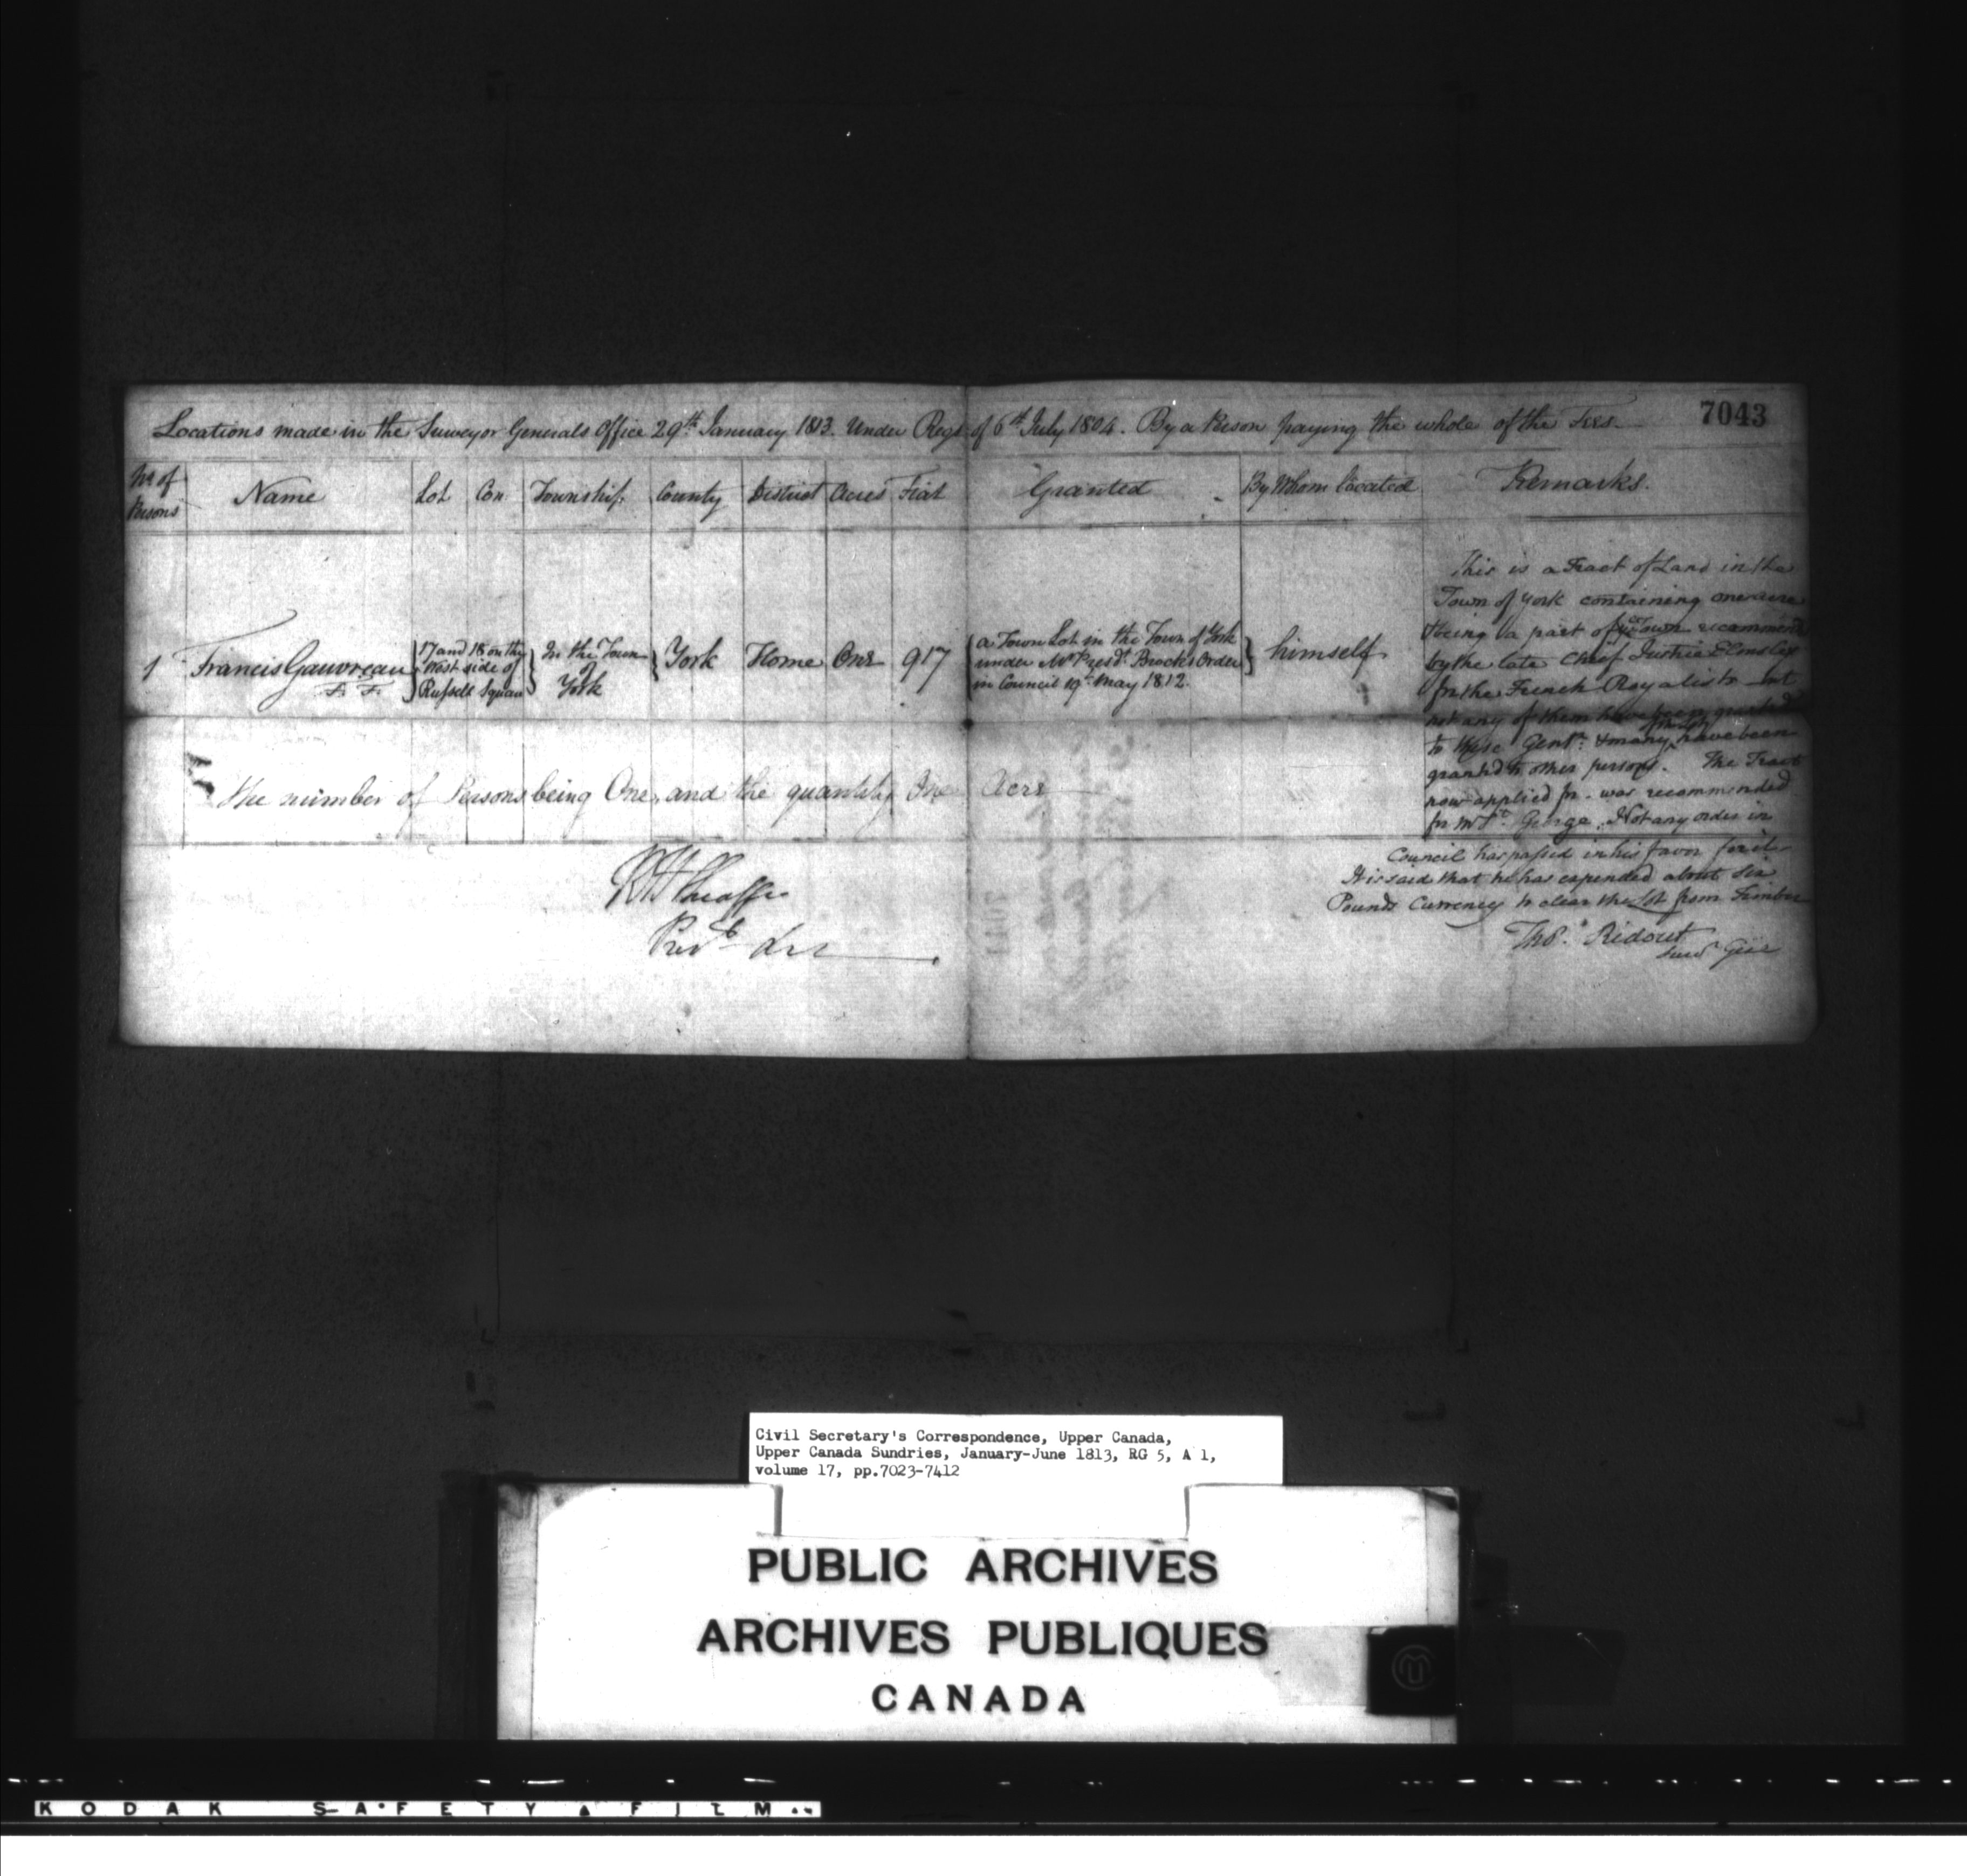 7043
Locations made in the Surveyor Generals Office 29th January 1813. Under Regs of 6th July 1804. By a Person paying the whole of the Fees.
No. of Persons
Name
Lot
Con
Township
County
District
Acres
Fiat
Granted
By Whom located
Remarks.
1
Francis Gauvreau
17 and 18 on the
West side of
Russell Square
In the Town
of
York
York
Home
One
917
a Town Lot in the Town of York
under Mr Presdt. Brock's Order
in Council 19th May 1812.
himself
This is a Tract of Land in the
Town of York containing one acre
being a part of ye Town recommended
by the late Chief Justice Elmsley
for the French Royalists but
not any of them have been granted
to these Gentn. & many have been
granted to other persons. The Tract
now applied for was recommended
for Mr St. George. Not any order in
Council has passed in his favor for it
It is said that he has expended about Six
Pounds Currency to clear the Lot from Timber
Thos. Ridout
Survr Genl
The number of Persons being One, and the quantity One Acre
R H Sheaffe
Presdt
Civil Secretary's Correspondence, Upper Canada,
Upper Canada Sundries, January-June 1813, RG 5, A 1,
volume 17, pp.7023-7412
PUBLIC ARCHIVES
ARCHIVES PUBLIQUES
CANADA
KODAK SAFETY FILM